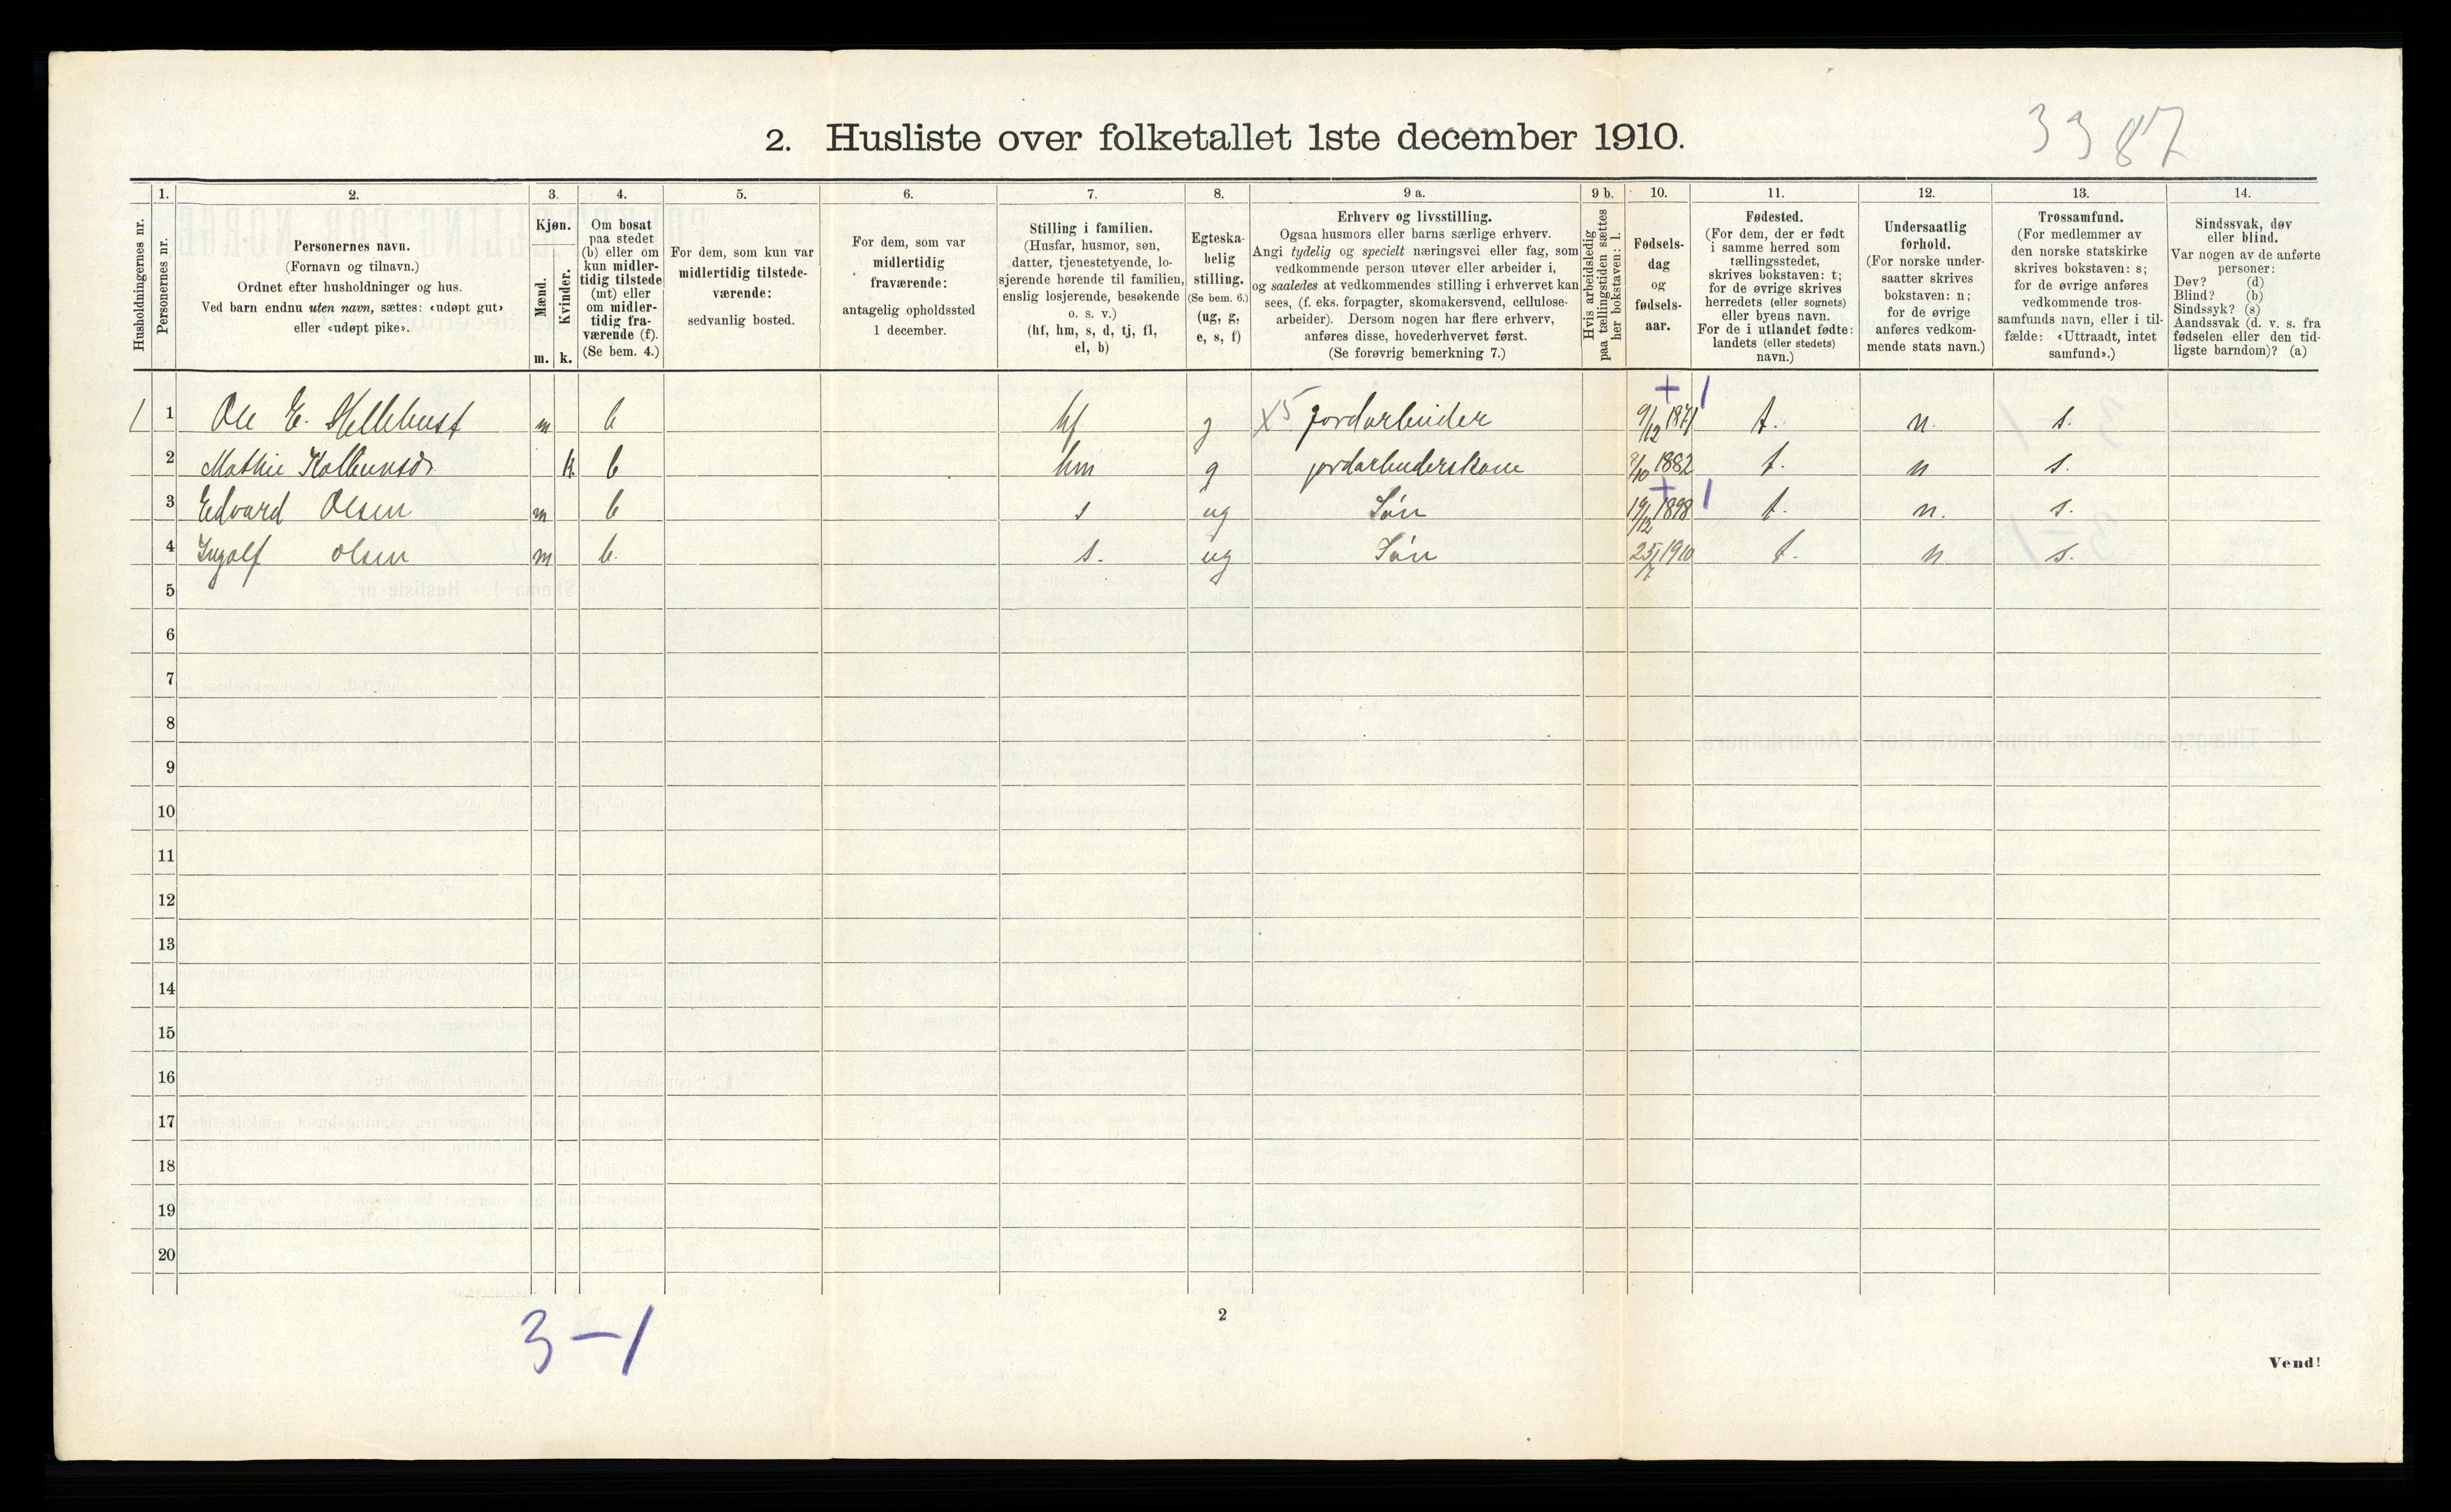 3387
2. Husliste over folketallet 1ste december 1910.
Husholdningernes nr.
1.
Personernes nr.
2.
Personernes navn.
(Fornavn og tilnavn.)
Ordnet efter husholdninger og hus.
Ved barn endnu uten navn, sættes: «udøpt gut»
eller «udøpt pike».
3.
Kjøn.
Mænd.
Kvinder.
m. k.
4.
Om bosat
paa stedet
(b) eller om
kun midler-
tidig tilstede
(mt) eller
om midler-
tidig fra-
værende (f).
(Se bem. 4.)
5.
For dem, som kun var
midlertidig tilstede-
værende:
sedvanlig bosted.
6.
For dem, som var
midlertidig
fraværende:
antagelig opholdssted
1 december.
7.
Stilling i familien.
(Husfar, husmor, søn,
datter, tjenestetyende, lo-
sjerende hørende til familien,
enslig losjerende, besøkende
o. s. v.)
(hf, hm, s, d, tj, fl,
el, b)
8.
Egteska-
belig
stilling.
(Se bem. 6.)
(ug, g,
e, s, f)
9 a.
Erhverv og livsstilling.
Ogsaa husmors eller barns særlige erhverv.
Angi tydelig og specielt næringsvei eller fag, som
vedkommende person utøver eller arbeider i,
og saaledes at vedkommendes stilling i erhvervet kan
sees, (f. eks. forpagter, skomakersvend, cellulose-
arbeider). Dersom nogen har flere erhverv,
anføres disse, hovederhvervet først.
(Se forøvrig bemerkning 7.)
9 b.
Hvis arbeidsledig
paa tællingstiden sættes
her bokstaven: l.
10.
Fødsels-
dag
og
fødsels-
aar.
11.
Fødested.
(For dem, der er født
i samme herred som
tællingsstedet,
skrives bokstaven: t;
for de øvrige skrives
herredets (eller sognets)
eller byens navn.
For de i utlandet fødte:
landets (eller stedets)
navn.)
12.
Undersaatlig
forhold.
(For norske under-
saatter skrives
bokstaven: n;
for de øvrige
anføres vedkom-
mende stats navn.)
13.
Trossamfund.
(For medlemmer av
den norske statskirke
skrives bokstaven: s;
for de øvrige anføres
vedkommende tros-
samfunds navn, eller i til-
fælde: «Uttraadt, intet
samfund».)
14.
Sindssvak, døv
eller blind.
Var nogen av de anførte
personer:
Døv? (d)
Blind? (b)
Sindssyk? (s)
Aandssvak (d. v. s. fra
fødselen eller den tid-
ligste barndom)? (a)
1 1 Ole E. Hellebust m b hf g X5 Jordarbeider 9/12 1871 + 1 t. n. s.
2 Mathie Kolbeinsdr k b hm g jordarbeiderskone 9/10 1882 t. n s.
3 Edvard Olsen m b s ug Søn 19/12 1898 + 1 t. n. s.
4 Ingolf Olsen m b. s. ug Søn 25/7 1910 t. n s.
5
6
7
8
9
10
11
12
13
14
15
16
17
18
19
20
3-1
2
Vend!